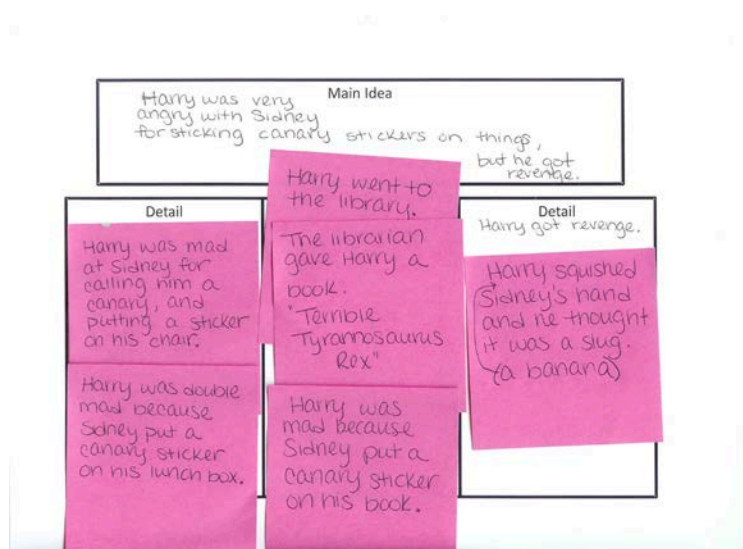 Main Idea
Harry was very
angry with Sidney
for sticking canary stickers on things,
but he got
revenge.
Detail
Harry was mad
at Sidney for
calling him a
canary, and
putting a sticker
on his chair.
Harry was double
mad because
Sidney put a
canary sticker
on his lunch box.
Harry went to
the library.
The librarian
gave Harry a
book.
"Terrible
Tyrannosaurus
Rex"
Harry was
mad because
Sidney put a
canary sticker
on his book.
Detail
Harry got revenge.
Harry squished
Sidney's hand
and he thought
it was a slug.
(a banana)